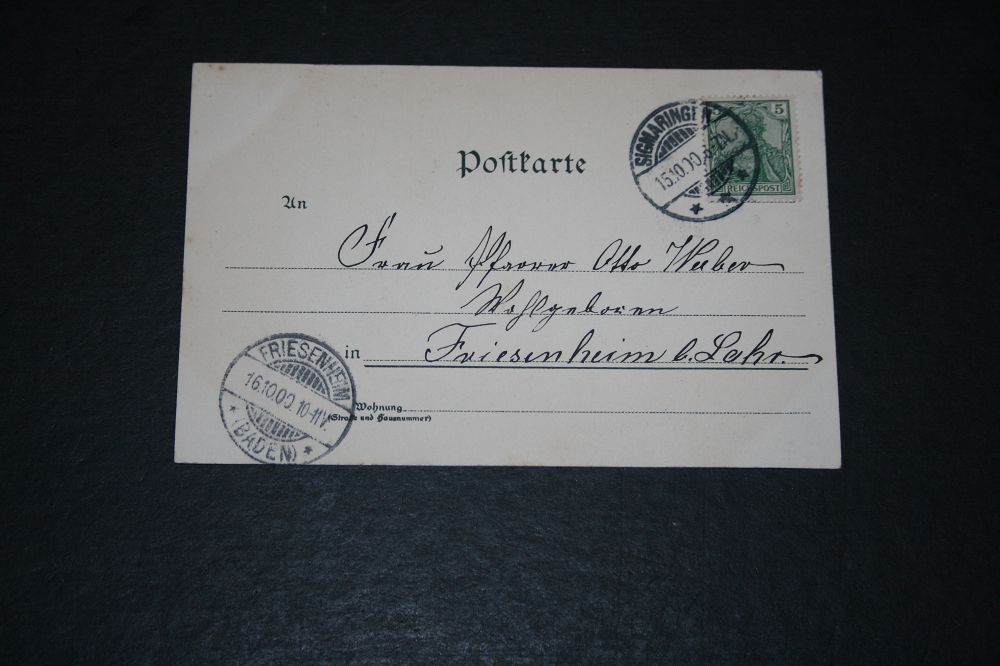 SIGMARINGEN
15.10.00. 6-7N.
5
REICHSPOST
Postkarte
An
Frau Pfarrer Otto Weber
Wohlgeboren
in Friesenheim b. Lahr.
Wohnung
(Straße und Hausnummer)
FRIESENHEIM
16.10.00. 10-11V.
(BADEN)